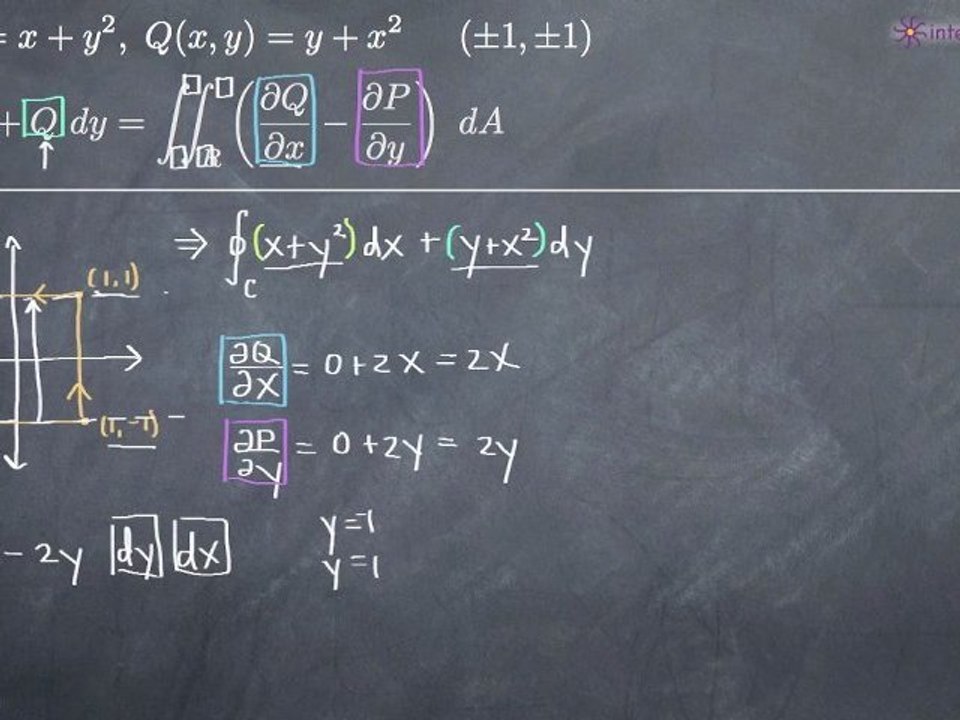 = x + y², Q(x, y) = y + x² (±1, ±1)
inte
+ Q dy = ∬_R (∂Q/∂x − ∂P/∂y) dA
⇒ ∮_C (x+y²)dx + (y+x²)dy
(1,1)
∂Q/∂x = 0+2x = 2x
(1,-1)
∂P/∂y = 0+2y = 2y
- 2y dy dx
y=-1
y=1